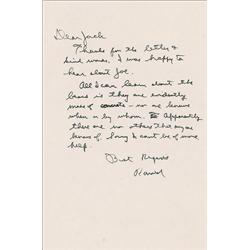 Dear Jack
Thanks for the letter &
kind words. I was happy to
hear about Joe.
All I can learn about the
bears is they are evidently
made of concrete - no one knows
when or by whom. Apparently
there are no others that anyone
knows of. Sorry I can't be of more
help.
Best Regards